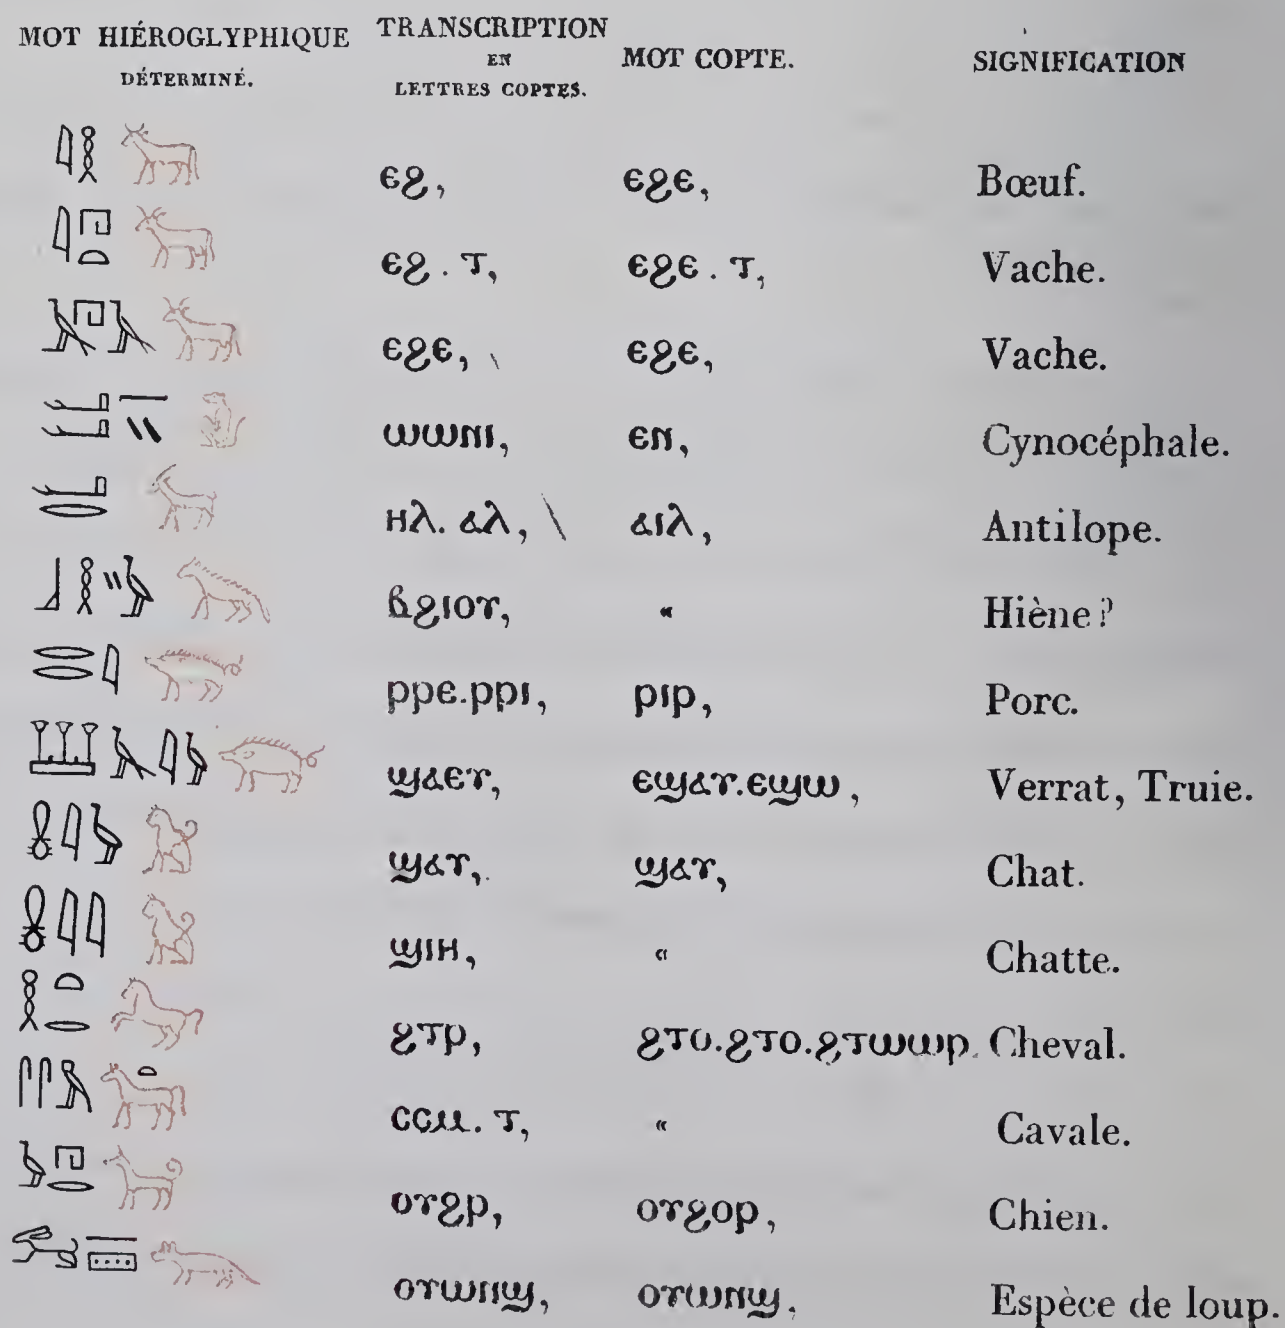 MOT HIÉROGLYPHIQUE DÉTERMINÉ. TRANSCRIPTION EN LETTRES COPTES. MOT COPTE. SIGNIFICATION
ⲉϩ, ⲉϩⲉ, Bœuf.
ⲉϩ . ⲧ, ⲉϩⲉ . ⲧ, Vache.
ⲉϩⲉ, ⲉϩⲉ, Vache.
ⲱⲱⲛⲓ, ⲉⲛ, Cynocéphale.
ⲏⲗ. ⲁⲗ, ⲁⲓⲗ, Antilope.
ⲃϩⲓⲟⲩ, « Hiène?
ⲣⲣⲉ.ⲣⲣⲓ, ⲣⲓⲣ, Porc.
ϣⲁⲉⲩ, ⲉϣⲁⲩ.ⲉϣⲱ, Verrat, Truie.
ϣⲁⲩ, ϣⲁⲩ, Chat.
ϣⲓⲏ, « Chatte.
ϩⲧⲣ, ϩⲧⲟ.ϩⲧⲟ.ϩⲧⲱⲱⲣ. Cheval.
ⲥⲥⲙ. ⲧ, « Cavale.
ⲟⲩϩⲣ, ⲟⲩϩⲟⲣ, Chien.
ⲟⲩⲱⲛϣ, ⲟⲩⲱⲛϣ, Espèce de loup.